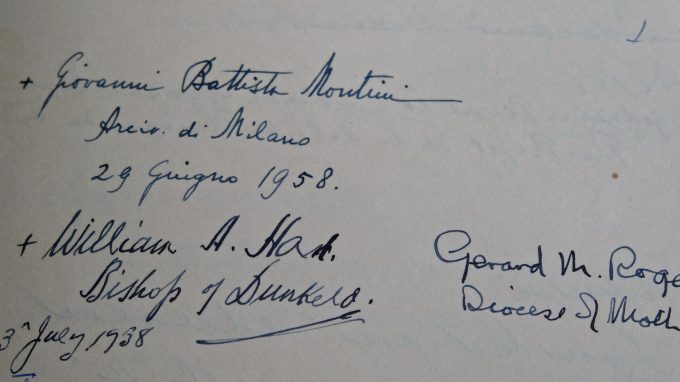 + Giovanni Battista Montini
Arciv. di Milano
29 Giugno 1958.
+ William A. Hart.
Bishop of Dunkeld.
3ʳ July 1958
Gerard M. Roge
Diocese of Moth